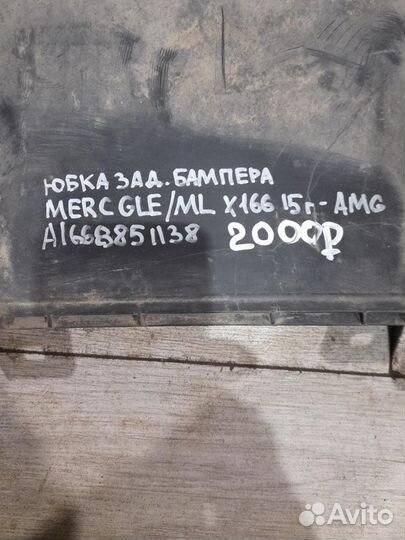 ЮБКА ЗАД. БАМПЕРА
MERC GLE/ML X166 15г- AMG
A1668851138 2000₽
Avito